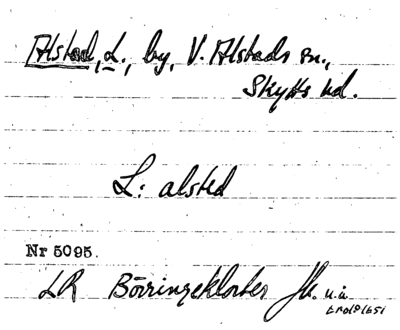 Alstad, L., by, V. Alstads sn.,
Skytts hd.
L: alsted
Nr 5095.
LR Börringekloster Jb.